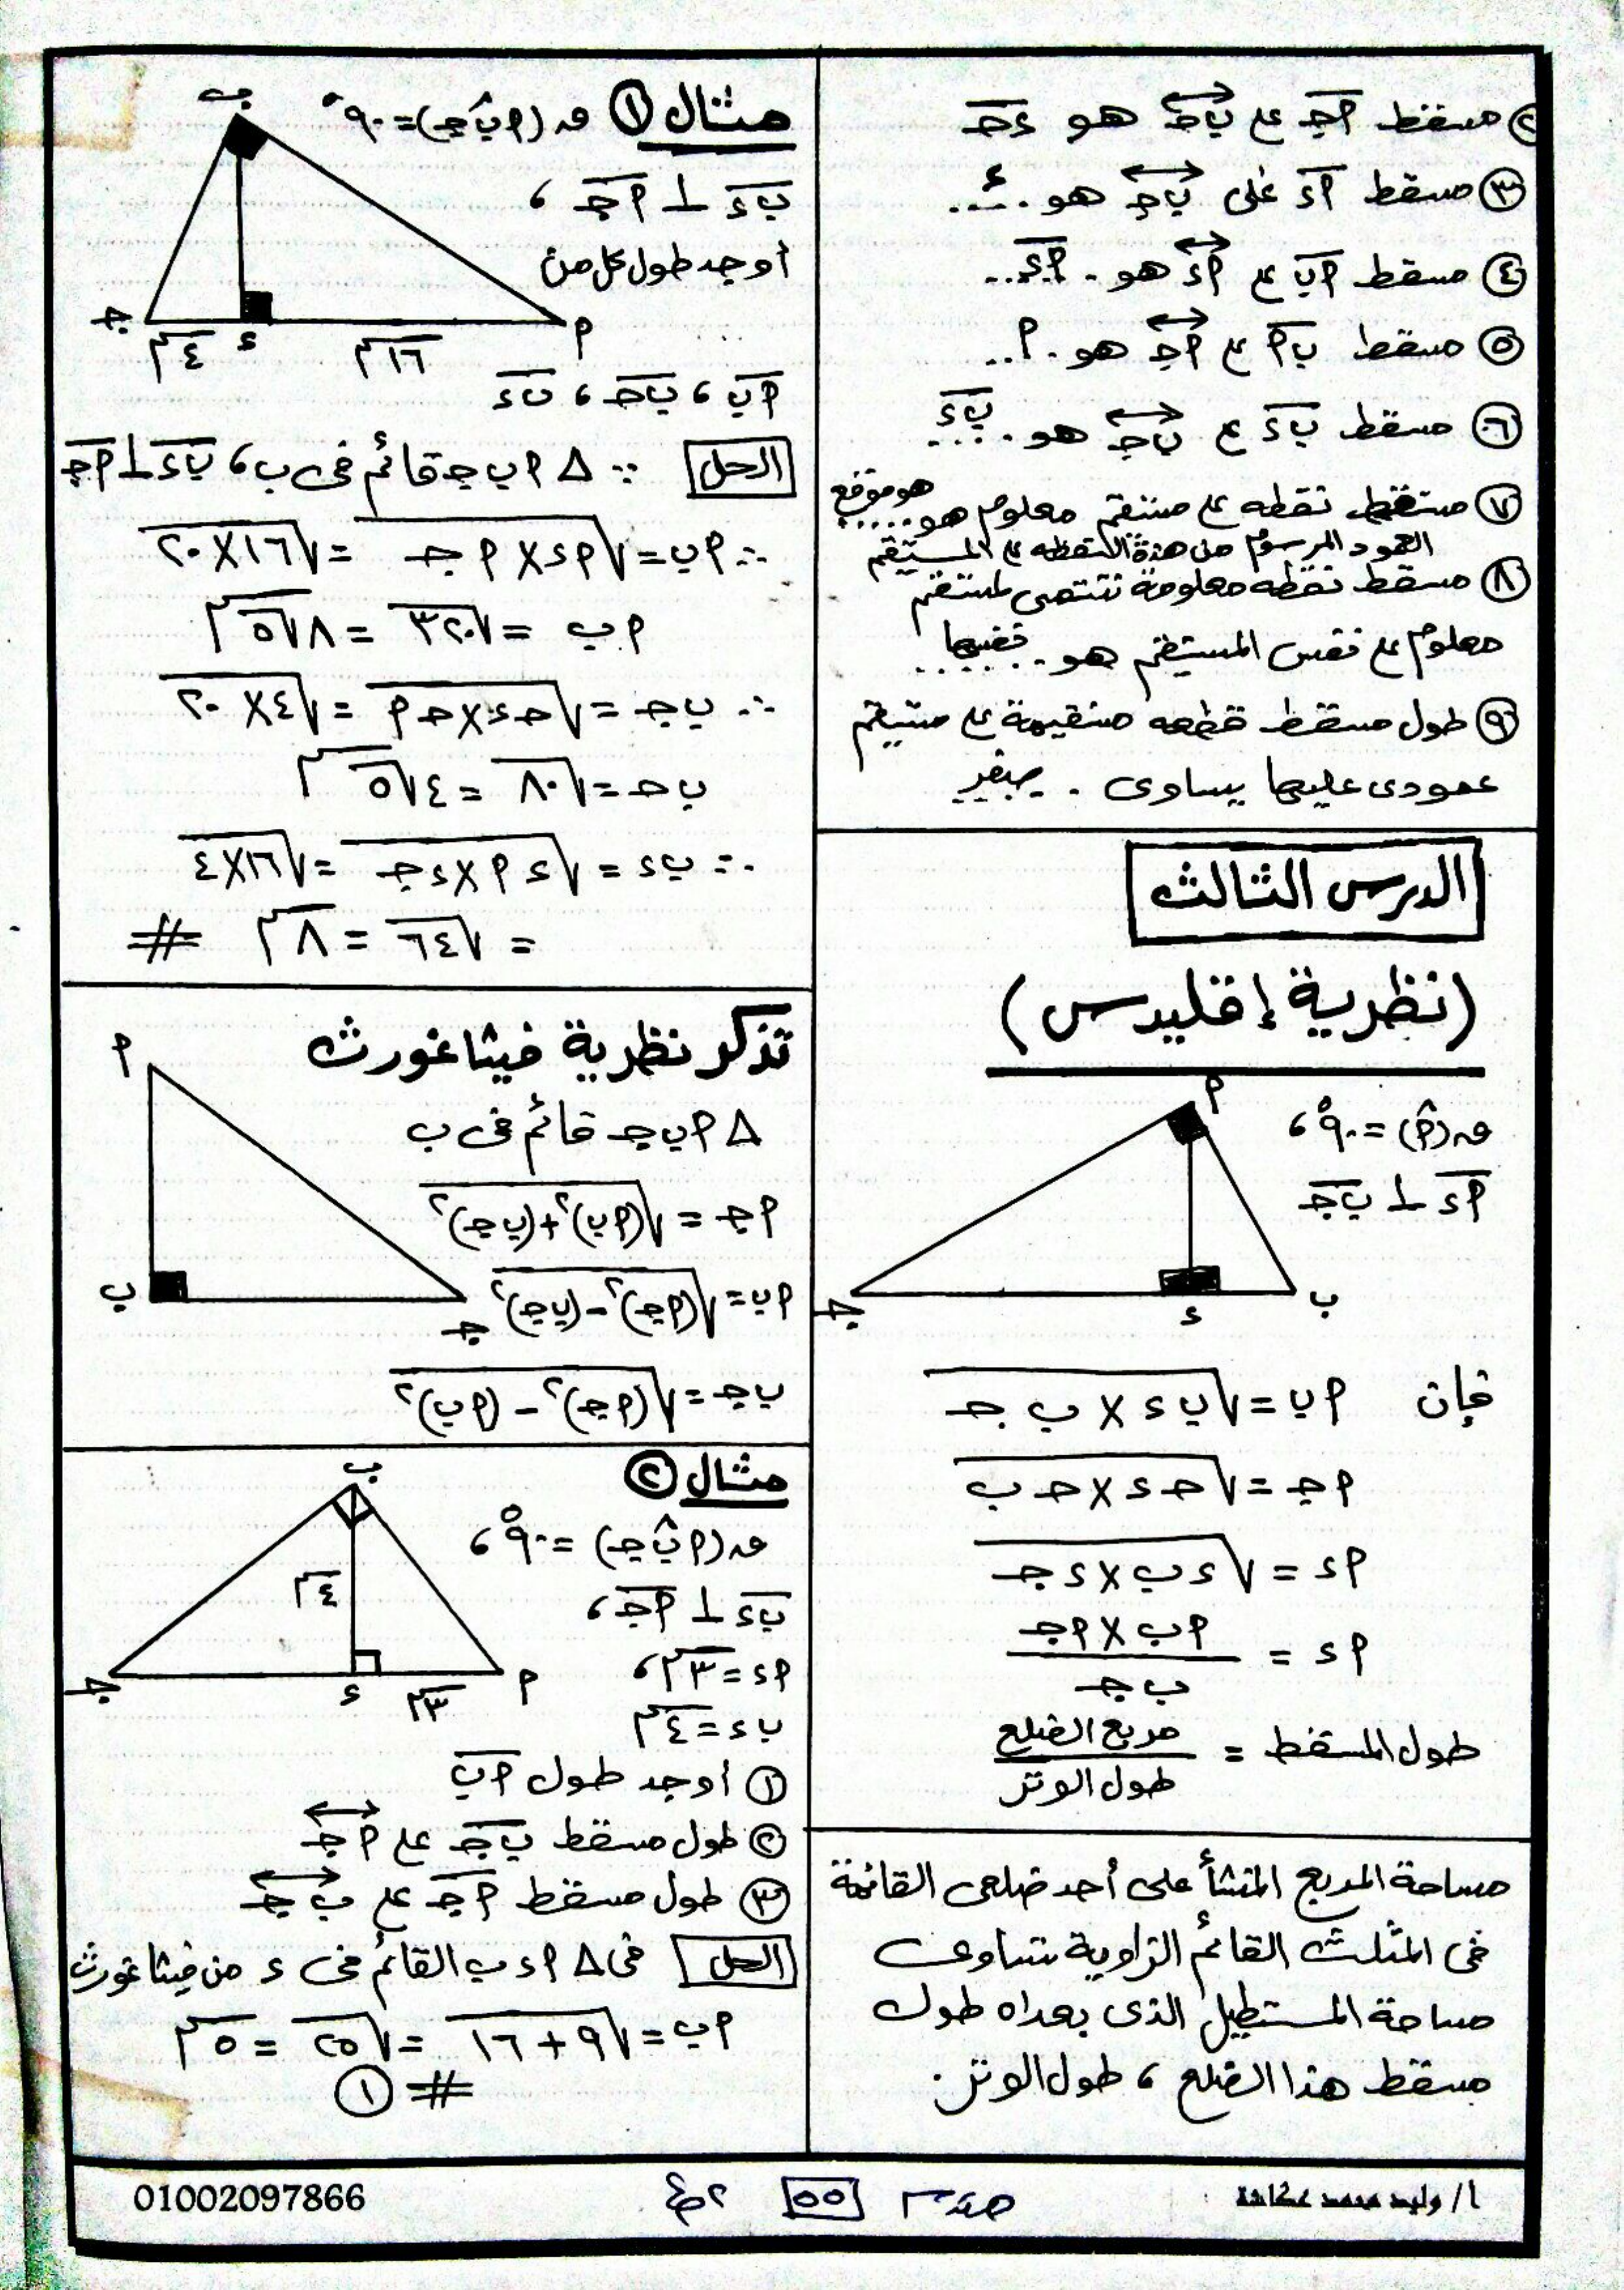 ② مسقط أجـ على ب جـ هو ء جـ
③ مسقط أء على ب جـ هو .. ء ..
④ مسقط أب على أء هو .. أء ..
⑤ مسقط ب أ على أجـ هو .. أ ..
⑥ مسقط ب ء على ب جـ هو .. ب ء ..
⑦ مسقط نقطه على مستقيم معلوم هو ..... هو موقع
العمود المرسوم من هذة النقطه على المستقيم
⑧ مسقط نقطه معلومة تنتمى لمستقيم
معلوم على نفس المستقيم هو .. نفسها ..
⑨ طول مسقط قطعه مستقيمة على مستقيم
عمودى عليها يساوى . صفر
الدرس الثالث
(نظرية إقليدس)
أ
ق(أ^) = ٩٠° ،
أء ⊥ ب جـ
جـ ء ب
فإن أب = √(ب ء × ب جـ)
أجـ = √(جـ ء × جـ ب)
أء = √(ء ب × ء جـ)
أء = (أب × أجـ) / (ب جـ)
طول المسقط = مربع الضلع / طول الوتر
مساحة المربع المنشأ على أحد ضلعى القائمة
فى المثلث القائم الزاوية تساوى
مساحة المستطيل الذى بعداه طول
مسقط هذا الضلع ، طول الوتر .
مثال ① ق(أ ب^ جـ) = ٩٠°
ب ء ⊥ أجـ ،
أوجد طول كل من
ب
جـ ٤سم ء ١٦سم أ
أب ، ب جـ ، ب ء
الحل ∵ Δ أ ب جـ قائم فى ب ، ب ء ⊥ أجـ
∴ أب = √(أء × أجـ) = √(١٦ × ٢٠)
أب = √٣٢٠ = ٨√٥ سم
∴ ب جـ = √(جـ ء × جـ أ) = √(٤ × ٢٠)
ب جـ = √٨٠ = ٤√٥ سم
∴ ب ء = √(ء أ × ء جـ) = √(١٦ × ٤)
= √٦٤ = ٨ سم #
تذكر نظرية فيثاغورث
أ
ب
جـ
Δ أ ب جـ قائم فى ب
أجـ = √((أب)٢ + (ب جـ)٢)
أب = √((أجـ)٢ − (ب جـ)٢)
ب جـ = √((أجـ)٢ − (أب)٢)
مثال ②
ب
ق(أ ب^ جـ) = ٩٠° ،
٤سم
ب ء ⊥ أجـ ،
جـ ء ٣سم أ
أء = ٣سم ،
ب ء = ٤سم
① أوجد طول أب
② طول مسقط ب جـ على أجـ
③ طول مسقط أجـ على ب جـ
الحل فى Δ أ ء ب القائم فى ء من فيثاغورث
أب = √(٩ + ١٦) = √٢٥ = ٥ سم
# ①
أ/ وليد محمد عكاشة
هندسة ٥٥ ٢ع
01002097866